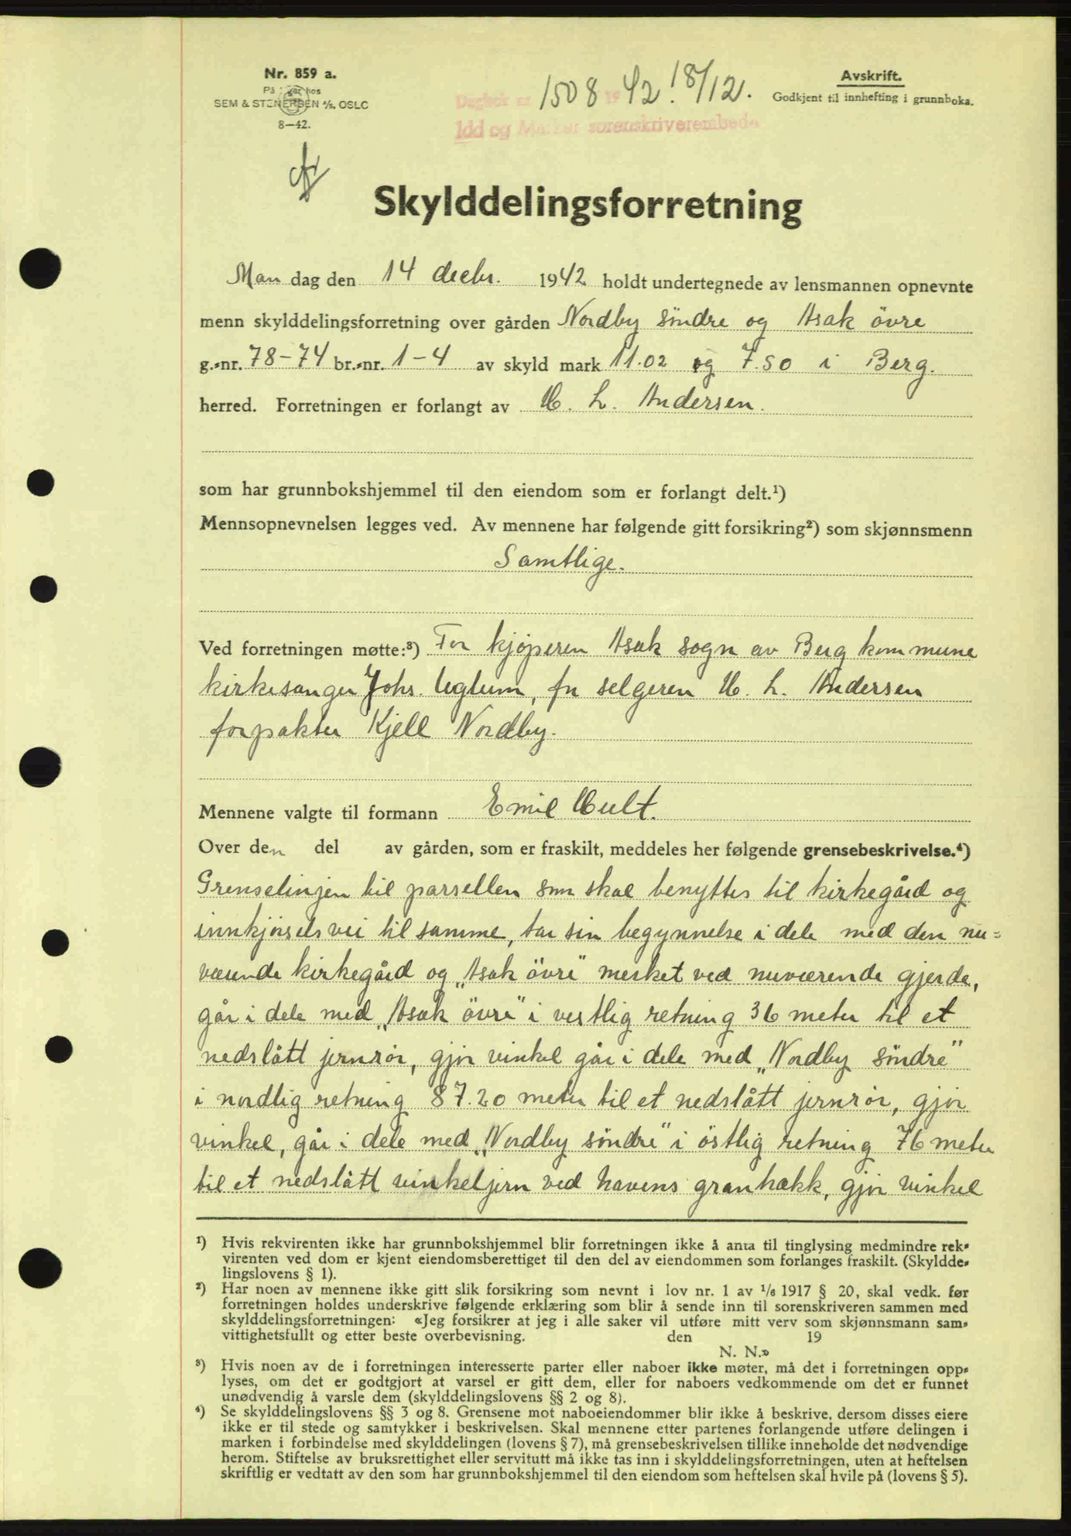 Nr. 859 a.
På lager hos
SEM & STENERSEN A/S, OSLO
8—42.
Dagbok nr. 1508 1942. 18/12.
Idd og Marker sorenskriverembede
Avskrift.
Godkjent til innhefting i grunnboka.
Skylddelingsforretning
Man dag den 14 decbr. 1942 holdt undertegnede av lensmannen opnevnte
menn skylddelingsforretning over gården Nordby söndre og Asak övre
g.-nr. 78-74 br.-nr. 1-4 av skyld mark 11.02 og 7.50 i Berg.
herred. Forretningen er forlangt av H. L. Andersen.
som har grunnbokshjemmel til den eiendom som er forlangt delt.¹)
Mennsopnevnelsen legges ved. Av mennene har følgende gitt forsikring²) som skjønnsmenn
Samtlige.
Ved forretningen møtte:³) For kjøperen Asak sogn av Berg kommune
kirkesanger Johs. Uglum, for selgeren H. L. Andersen
forpakter Kjell Nordby.
Mennene valgte til formann Emil Hult.
Over den del av gården, som er fraskilt, meddeles her følgende grensebeskrivelse.⁴)
Grenselinjen til parsellen som skal benyttes til kirkegård og
innkjörselsvei til samme, tar sin begynnelse i dele med den nu=
værende kirkegård og „Asak övre" merket ved nuværende gjerde,
går i dele med „Asak övre" i vestlig retning 36 meter til et
nedslått jernrör, gjör vinkel går i dele med „Nordby söndre"
i nordlig retning 87.20 meter til et nedslått jernrör, gjör
vinkel, går i dele med „Nordby söndre" i östlig retning 76 meter
til et nedslått vinkeljern ved havens granhækk, gjör vinkel
¹) Hvis rekvirenten ikke har grunnbokshjemmel blir forretningen ikke å anta til tinglysing medmindre rek-
virenten ved dom er kjent eiendomsberettiget til den del av eiendommen som forlanges fraskilt. (Skyldde-
lingslovens § 1).
²) Har noen av mennene ikke gitt slik forsikring som nevnt i lov nr. 1 av 1/6 1917 § 20, skal vedk. før
forretningen holdes underskrive følgende erklæring som blir å sende inn til sorenskriveren sammen med
skylddelingsforretningen: «Jeg forsikrer at jeg i alle saker vil utføre mitt verv som skjønnsmann sam-
vittighetsfullt og etter beste overbevisning. den 19
N. N.»
³) Hvis noen av de i forretningen interesserte parter eller naboer ikke møter, må det i forretningen opp-
lyses, om det er godtgjort at varsel er gitt dem, eller for naboers vedkommende om det er funnet
unødvendig å varsle dem (skylddelingslovens §§ 2 og 8).
⁴) Se skylddelingslovens §§ 3 og 8. Grensene mot naboeiendommer blir ikke å beskrive, dersom disses eiere
ikke er til stede og samtykker i beskrivelsen. Skal mennene etter partenes forlangende utføre delingen i
marken i forbindelse med skylddelingen (lovens § 7), må grensebeskrivelsen tillike inneholde det nødvendige
herom. Stiftelse av bruksrettighet eller servitutt må ikke tas inn i skylddelingsforretningen, uten at heftelsen
skriftlig er vedtatt av den som har grunnbokshjemmel til den eiendom som heftelsen skal hvile på (lovens § 5).